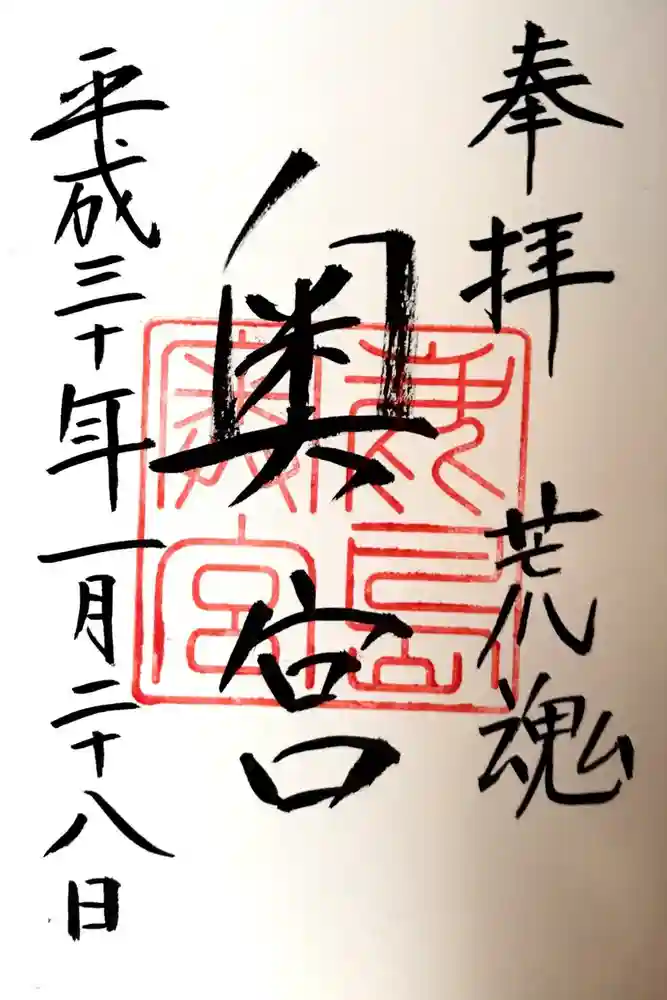 奉拝 荒魂
奥宮
鹿島
奥宮
平成三十年一月二十八日